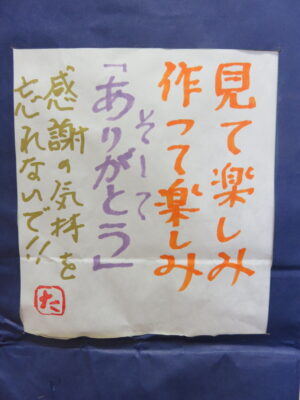 見て楽しみ
作って楽しみ
そして
「ありがとう」
感謝の気持を
忘れないで!!
た